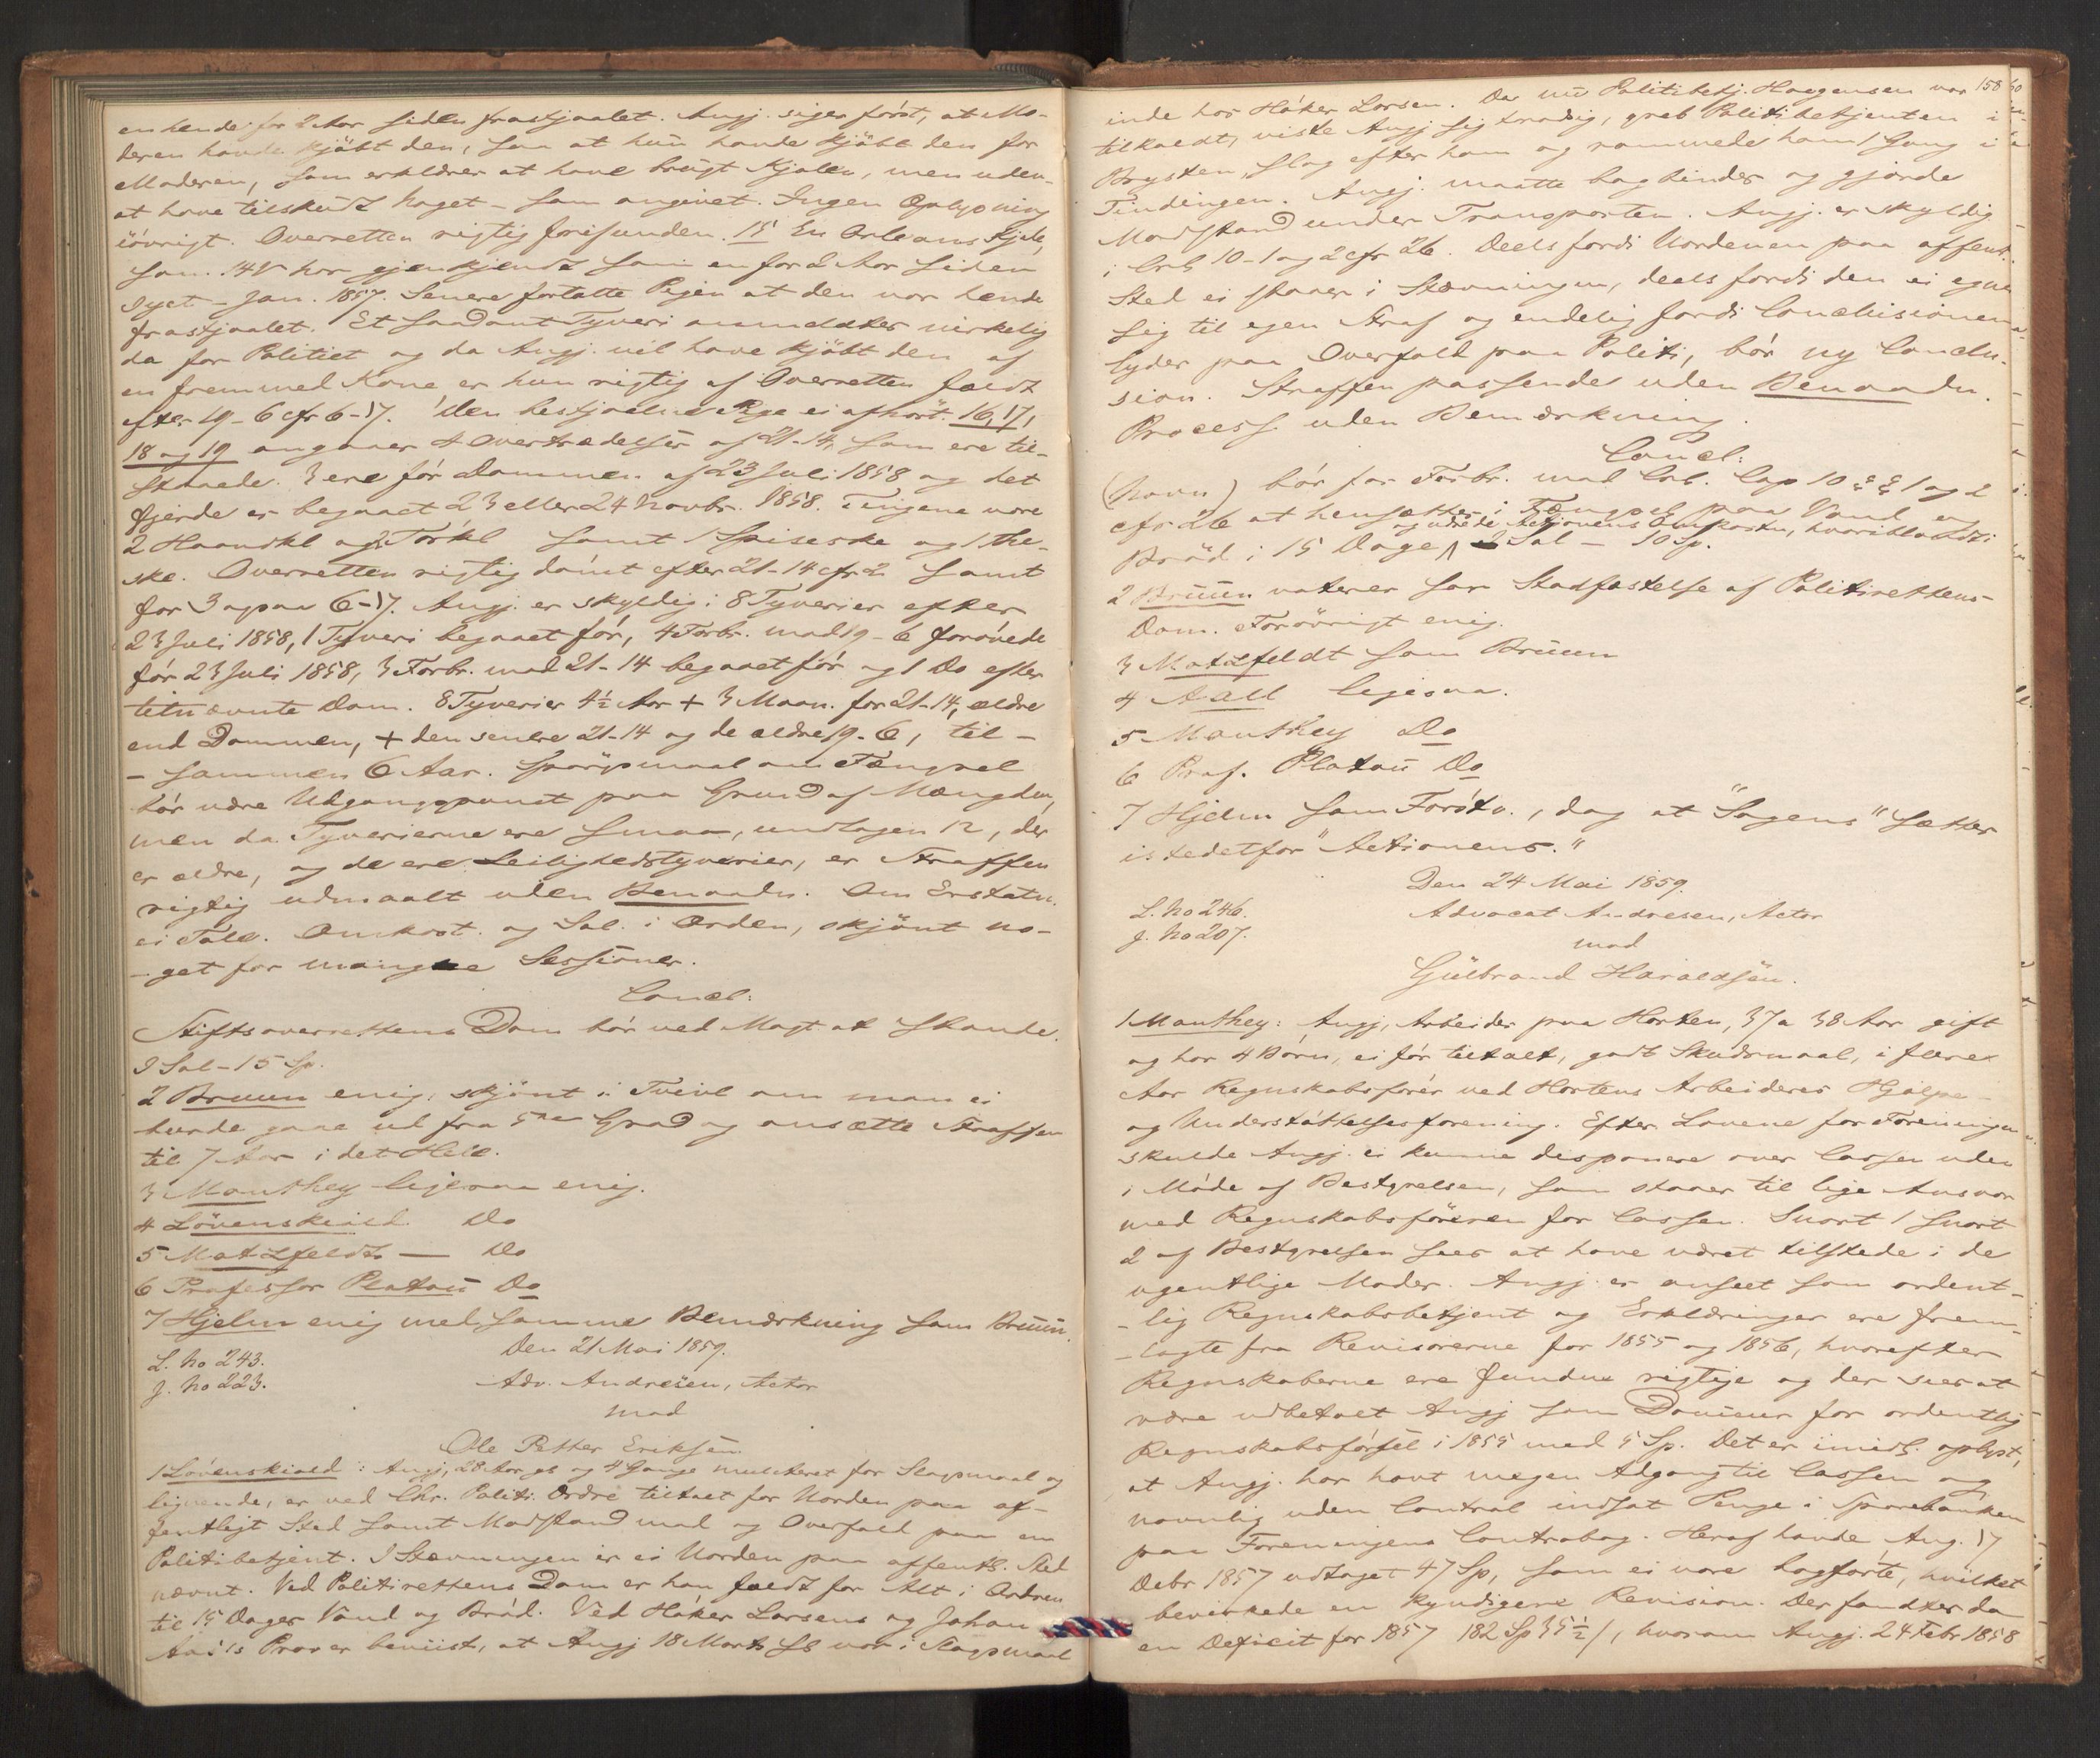 en hende for 2 Aar siden frastjaalet. Angj. siger först, at Mo-
deren havde kjöbt den, saa at hun havde kjöbt den for
Moderen, som erklærer at have brugt Kjolen, men uden
at have tilskudt noget - som angivet. Ingen Oplysning
iövrigt. Overretten rigtig frifunden. 15 En Orleans Kjole,
som 14 V har gjenkjendt som en for 2 Aar siden
syet - Jan. 1857. Senere fortalte Pigen at den var hende
frastjaalet. Et saadant Tyveri anmeldtes virkelig
da for Politiet og da Angj. vil have kjöbt den af
en fremmed Kone er hun rigtig af Overretten fældt
efter 19-6 cfr 6-17. Den bestjaalne Pige ei afhört. 16, 17,
18 og 19 angaaer 4 Overtrædelser af 21-14, som ere til-
staaede. 3 ere för Dommen af 23 Juli 1858 og det
fjerde er begaaet 23 eller 24 Novbr. 1858. Tingene vare
2 Haandkl og 2 Törkl samt 1 Spiseske og 1 The-
ske. Overretten rigtig dömt efter 21-14 cfr 2 samt
for 3 ogsaa 6-17. Angj. er skyldig i 8 Tyverier efter
23 Juli 1858, 1 Tyveri begaaet för, 4 Forbr. mod 19-6 forövede
för 23 Juli 1858, 3 Forbr. mod 21-14 begaaet för og 1 Do efter
bemeldte Dom. 8 Tyverier 4½ Aar + 3 Maan. for 21-14, ældre
end Dommen, + den senere 21-14 og de ældre 19-6, til-
- sammen 6 Aar. Spörgsmaal om Fængsel
bör være Udgangspunct paa Grund af Mængden,
men da Tyverierne ere smaa, undtagen 12, der
er ældre, og de ere Leilighedstyverier, er Straffen
rigtig udmaalt uden Benaadn. Om Erstatn.
ei Tale. Omkost. og Sal. i Orden, skjönt no-
- get for mange Sessioner.
Concl:
Stiftsoverrettens Dom bör ved Magt at stande.
I Sal - 15 Sp.
2 Bruun enig, skjönt i Tvivl om man ei
burde gaae ud fra 5te Grad og ansætte Straffen
til 7 Aar i det Hele.
3 Manthey ligesaa enig.
4 Lövenskiold Do
5 Motzfeldt — Do
6 Professor Platou Do
7 Hjelm enig med samme Bemærkning som Bruun.
L. No 243. Den 21 Mai 1859.
J. No 223. Adv. Andresen, Actor
mod
Ole Petter Eriksen
1 Lövenskiold: Angj, 28 Aar gl og 4 Gange mulcteret for Slagsmaal og
lignende, er ved Chr. Politi. Ordre tiltalt for Uorden paa of-
fentligt Sted samt Modstand mod og Overfald paa en
Politibetjent. I Stævningen er ei Uorden paa offentl. Sted
nævnt. Ved Politirettens Dom er han fældt for Alt i Ordren
til 15 Dages Vand og Bröd. Ved Höker Larsens og Johan
Prov er beviist, at Angj 18 Marts sl var i Slagsmaal
158
inde hos Höker Larsen. Da nu Politibetj. Haagensen var
tilkaldt, viste Angj sig trodsig, greb Politibetjenten i
Brysten, slog efter ham og rammede ham 1 Gang i
Tindingen. Angj. maatte bagbindes og gjorde
Modstand under Transporten. Angj. er skyldig
i Crl 10-1 og 2 cfr 26. Deels fordi Uordenen paa offentl.
Sted ei staaer i Stævningen, deels fordi den ei egner
sig til egen Straf og endelig fordi Conclusionen
lyder paa Overfald paa Politi, bör ny Conclu-
sion. Straffen passende uden Benaadn.
Process uden Bemærkning.
Concl:
(Navn) bör for Forbr. mod Crl. Cap 10 §§ 1 og 2
cfr 26 at hensættes i Fængsel paa Vand og
og udrede Actionens Omkostn, hvoriblandt i
Bröd i 15 Dage Sal - 10 Sp.
2 Bruun voterer for Stadfæstelse af Politirettens
Dom. Forövrigt enig.
3 Motzfeldt som Bruun
4 Aall ligesaa.
5 Manthey Do
6 Prof. Platou Do
7 Hjelm som Förstv., dog at "Sagens" sættes
istedetfor "Actionens."
Den 24 Mai 1859.
L. No 246. Advocat Andresen, Actor
J. No 207.
mod
Gulbrand Haraldsen.
1 Manthey: Angj, Arbeider paa Horten, 37 a 38 Aar gift
og har 4 Börn, ei för tiltalt, godt Skudsmaal, i flere
Aar Regnskabsförer ved Hortens Arbeideres Hjelpe-
og Understöttelsesforening. Efter Lovene for Foreningen
skulde Angj. ei kunne disponere over Cassen uden
i Möde af Bestyrelsen, som staaer til lige Ansvar
med Regnskabsföreren for Cassen. Snart 1 snart
2 af Bestyrelsen sees at have været tilstede i de
ugentlige Möder. Angj. er anseet som ordent-
- lig Regnskabsbetjent og Erklæringer ere frem-
- lagte fra Revisorerne for 1855 og 1856, hvorefter
Regnskaberne ere fundne rigtige og der sees at
være udbetalt Angj som Douceur for ordentlig
Regnskabsförsel i 1855 med 5 Sp. Det er imidl. oplyst,
at Angj. har havt megen Adgang til Cassen og
navnlig uden Control indsat Penge i Sparebanken
paa Foreningens Contrabog. Heraf havde Ang. 17
Debr 1857 udtaget 47 Sp, som ei vare bogförte, hvilket
bevirkede en kyndigere Revision. Der fandtes da
en Deficit for 1857 182 Sp 35½ /, hvorom Angj. 24 Febr 1858